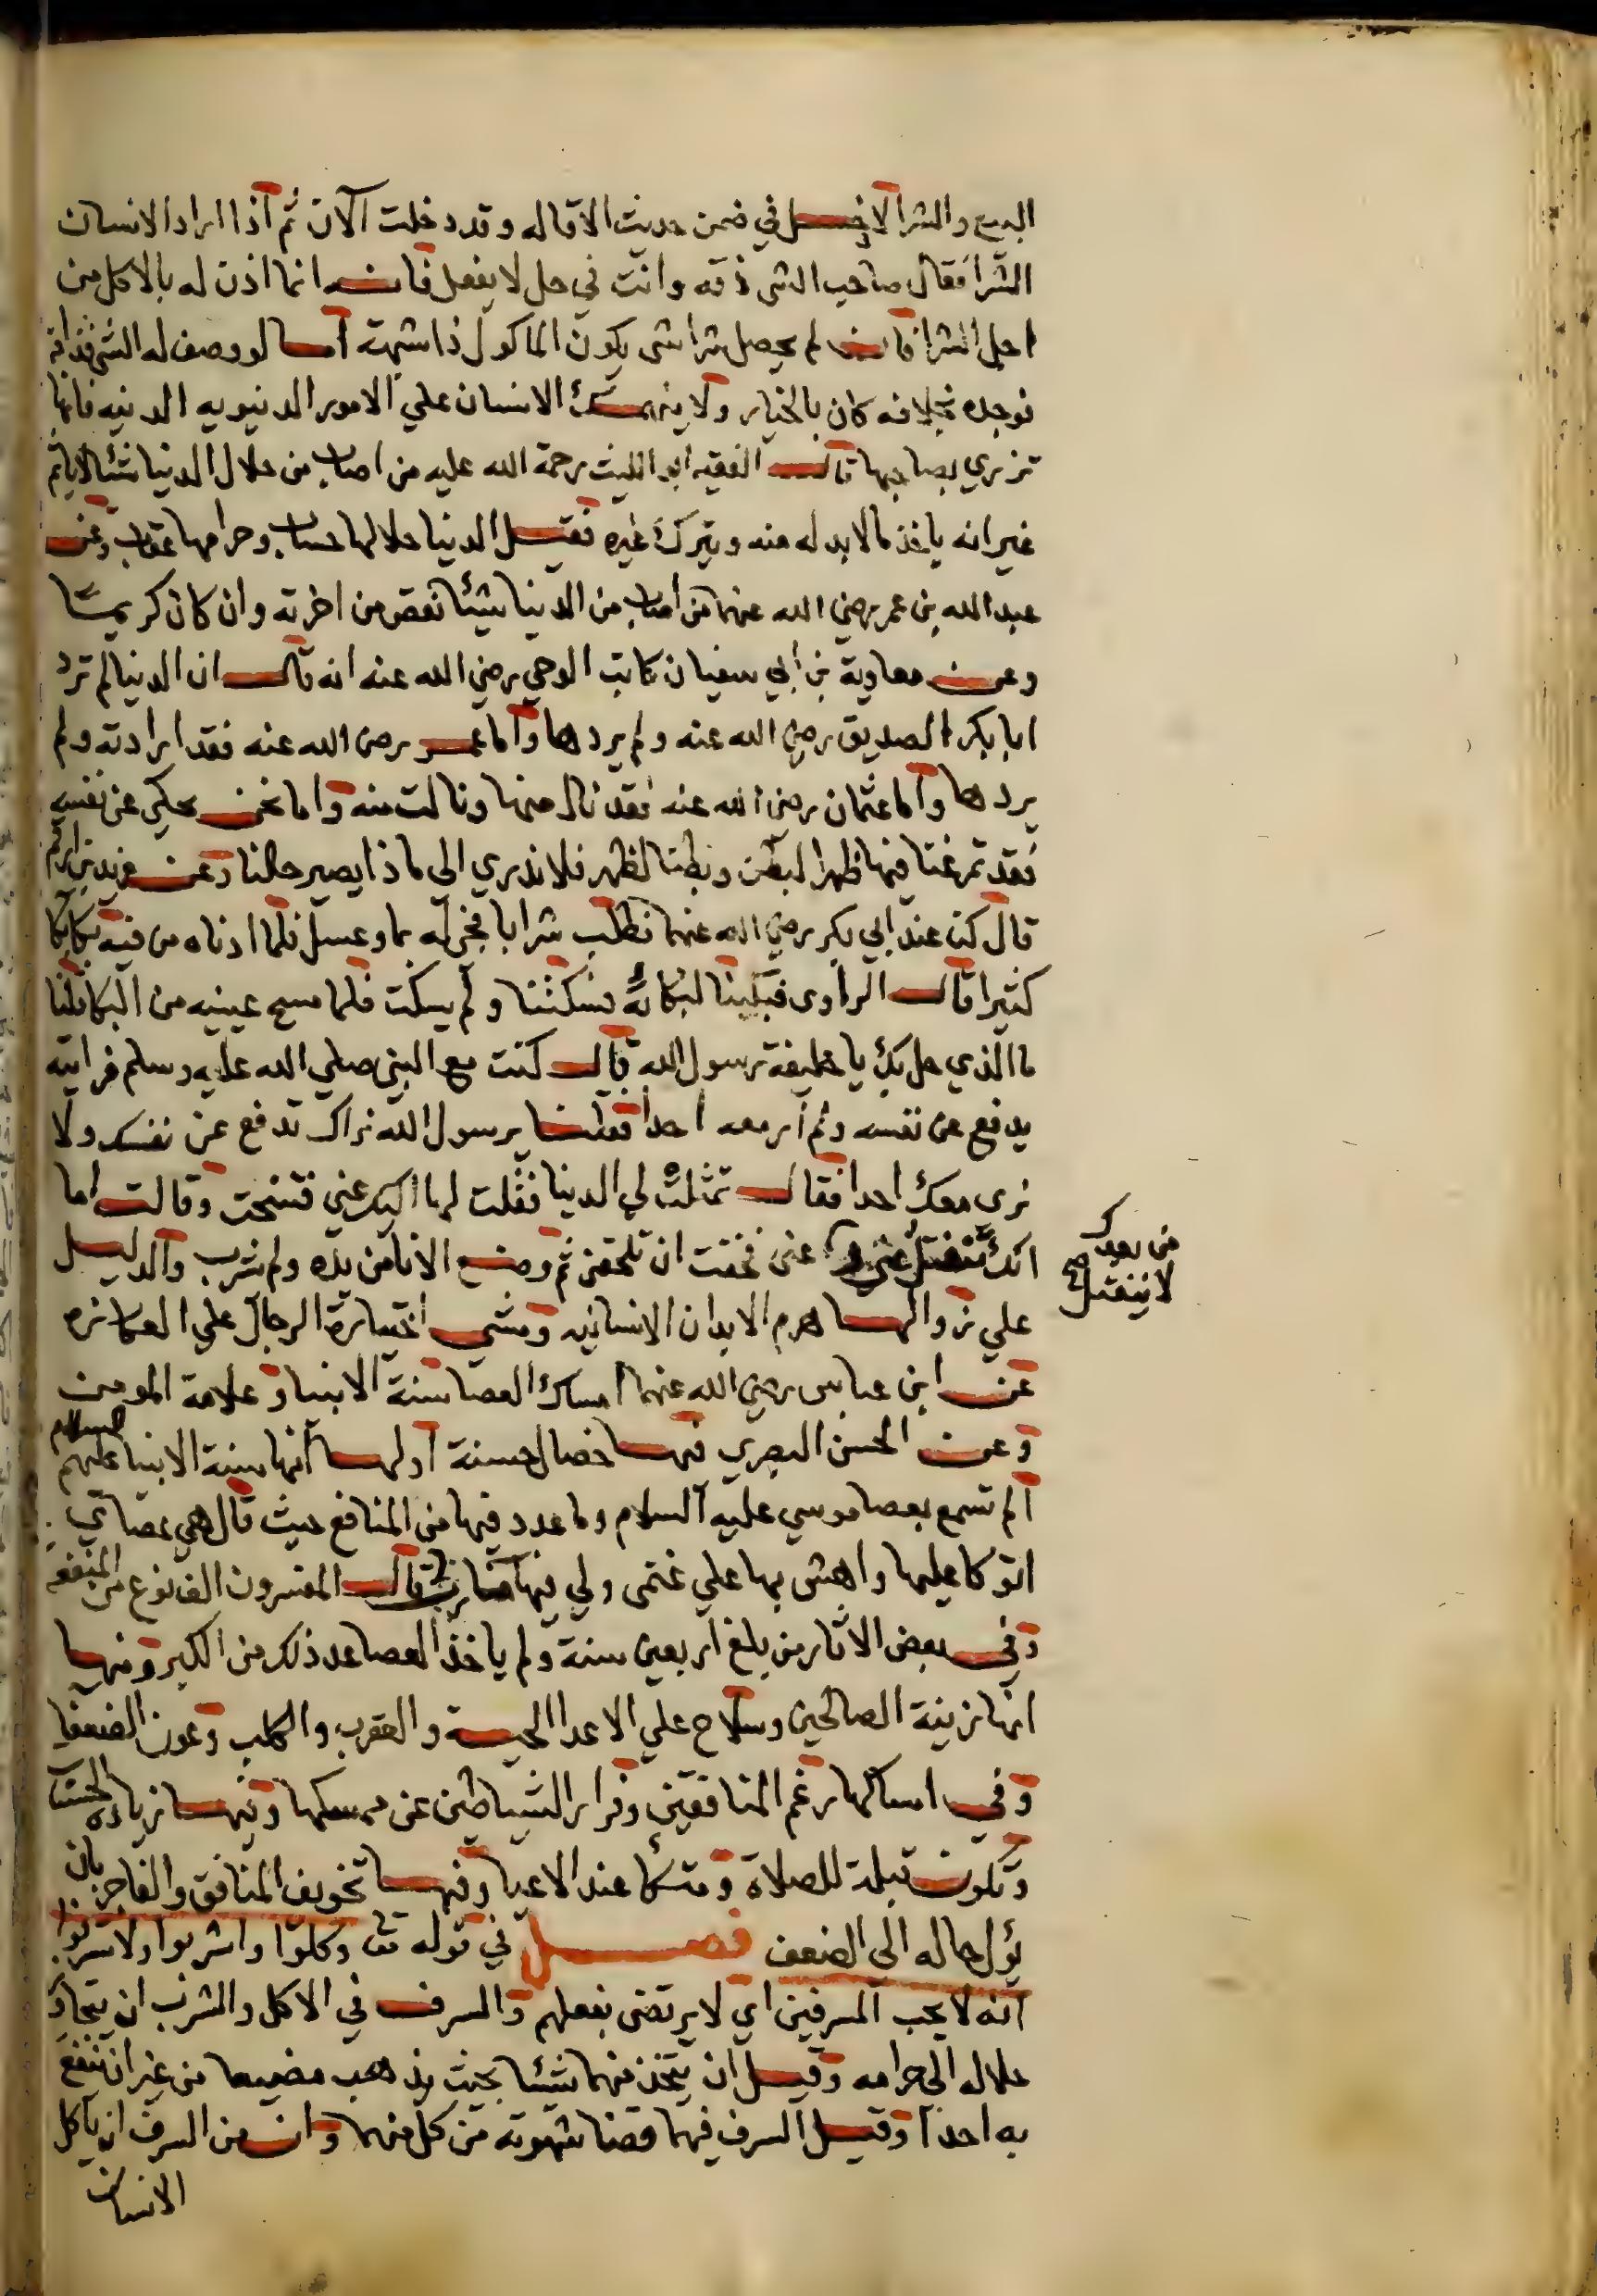 البيع والشرا لا دخل في ضمن حديث الاقاله وقد دخلت الآن ثم اذا اراد الانسان
الشرا فقال صاحب الشي ذقه وانت في حل لا يفعل فانه انما اذن له بالاكل من
اجل الشرا فان لم يحصل شرا شي يكون الماكول ذا شبهة اما لو وصف له الشي فذاقه
فوجده بخلافه كان بالخيار ولا ينهمك الانسان علي الامور الدنيويه الدنيه فانها
تزري بصاحبها قال الفقيه ابو الليث رحمة الله عليه من اصاب من حلال الدنيا شئا لا ياثم
غير انه ياخذ ما لابد له منه ويترك غيره فقيل الدنيا حلالها حساب وحرامها عقاب وعن
عبد الله بن عمر رضي الله عنهما من اصاب من الدنيا شيئا نقص من اخرته وان كان كريما
وعن معاوية بن ابي سفيان كاتب الوحي رضي الله عنه انه قال ان الدنيا لم ترد
ابا بكر الصديق رضي الله عنه ولم يردها واما عمر رضى الله عنه فقد ارادته ولم
يردها واما عثمان رضي الله عنه فقد نال منها ونالت منه واما نحن يحكي عن نفسه
فقد تمرغنا فيها ظهرا لبطن وبطنا لظهر فلا ندري الى ماذا يصير حالنا وعن زيد بن ارقم
قال كنت عند ابي بكر رضي الله عنهما فطلب شرابا فجئ له بما وعسل فلما ادناه من فيه بكا بكا
كثيرا قال الراوى فبكينا لبكائه فسكتنا ولم يسكت فلما مسح عينيه من البكا قلنا
ما الذي حل بك يا خليفة رسول الله قال كنت مع النبي صلي الله عليه وسلم فرايته
يدفع عن نفسه ولم أر معه احدا فقلنا يرسول الله نراك تدفع عن نفسك ولا
نرى معك احدا فقال تمثلت لي الدنيا فقلت لها اليك عني فتنحت وقالت اما
انك عنى فخفت ان تلحقني ثم وضع الانا من يده ولم يشرب والدليل
من بعدك
لا ينفتل صح
علي زوالها هرم الابدان الانسانيه ومشى اختيارة الرجال علي العكازه
عن ابن عباس رضي الله عنهما امساك العصا سنة الانبيا وعلامة المومن
وعن الحسن البصري فيها خصال حسنة اولها انها سنة الانبيا عليهم السلام
الم تسمع بعصا موسي عليه السلام وما عدد فيها من المنافع حيث قال هي عصاي
اتوكا عليها واهش بها علي غنمى ولي فيها مآرب قال المفسرون الف نوع من المنفعه
وفي بعض الاثار من بلغ اربعين سنة ولم ياخذ العصا عد ذلك من الكبر ومنها
انها زينة الصالحين وسلاح علي الاعدا الحيسة والعقرب والكلب وعون الضعفا
وفي امساكها رغم المنافقين وفرار الشياطين عن ممسكها وفيها زيادة الحسنات
وتكون قبلة للصلاة ومتكأ عند الاعيا وفيها تخويف المنافق والفاجر بان
يؤل حاله الى الضعف فصل في قوله تع وكلوا واشربوا ولا تسرفوا
انه لا يحب المسرفين اي لا يرتضى بفعلهم والسرف في الاكل والشرب ان يتجاوز
حلاله الى حرامه وقيل ان يتخذ منهما شيئا بحيث يذهب مضيعا من غير ان ينتفع
به احدا وقيل السرف فيهما قضا شهوته من كل منهما وان من السرف ان ياكل
الانسان